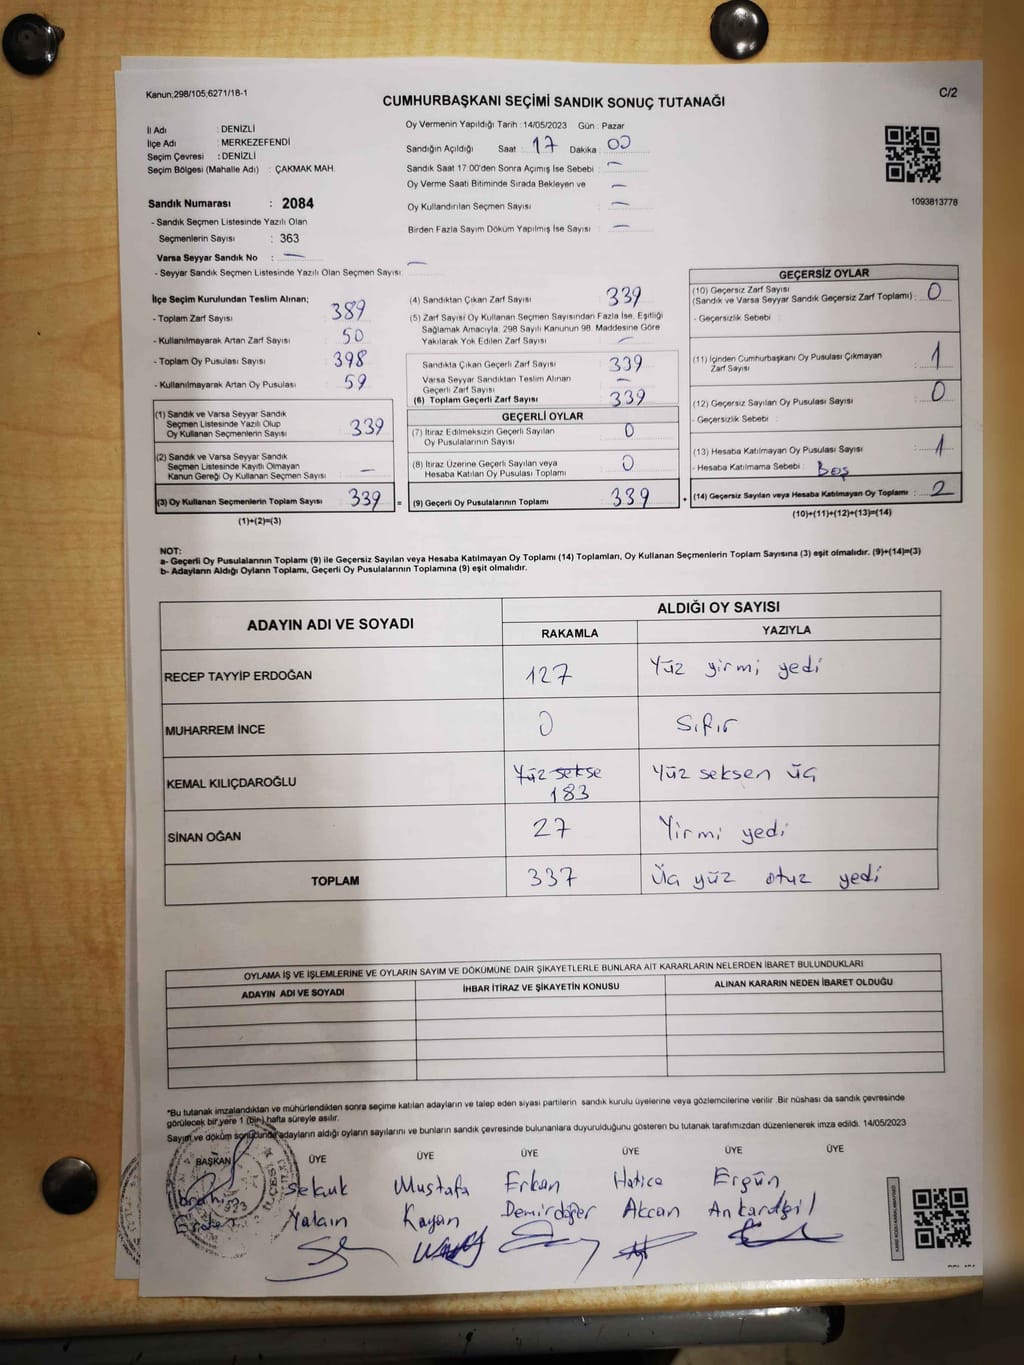 Kanun;298/105;6271/18-1
C/2
CUMHURBAŞKANI SEÇİMİ SANDIK SONUÇ TUTANAĞI
İl Adı : DENİZLİ
İlçe Adı : MERKEZEFENDİ
Seçim Çevresi : DENİZLİ
Seçim Bölgesi (Mahalle Adı) : ÇAKMAK MAH.
Sandık Numarası : 2084
- Sandık Seçmen Listesinde Yazılı Olan
Seçmenlerin Sayısı : 363
Varsa Seyyar Sandık No : —
- Seyyar Sandık Seçmen Listesinde Yazılı Olan Seçmen Sayısı: —
Oy Vermenin Yapıldığı Tarih : 14/05/2023 Gün : Pazar
Sandığın Açıldığı Saat : 17 Dakika : 00
Sandık Saat 17:00'den Sonra Açımış İse Sebebi : —
Oy Verme Saati Bitiminde Sırada Bekleyen ve —
Oy Kullandırılan Seçmen Sayısı : —
Birden Fazla Sayım Döküm Yapılmış İse Sayısı : —
1093813778
İlçe Seçim Kurulundan Teslim Alınan;
- Toplam Zarf Sayısı : 389
- Kullanılmayarak Artan Zarf Sayısı : 50
- Toplam Oy Pusulası Sayısı : 398
- Kullanılmayarak Artan Oy Pusulası : 59
(1) Sandık ve Varsa Seyyar Sandık
Seçmen Listesinde Yazılı Olup
Oy Kullanan Seçmenlerin Sayısı : 339
(2) Sandık ve Varsa Seyyar Sandık
Seçmen Listesinde Kayıtlı Olmayan
Kanun Gereği Oy Kullanan Seçmen Sayısı : —
(3) Oy Kullanan Seçmenlerin Toplam Sayısı : 339 =
(1)+(2)=(3)
(4) Sandıktan Çıkan Zarf Sayısı : 339
(5) Zarf Sayısı Oy Kullanan Seçmen Sayısından Fazla İse, Eşitliği
Sağlamak Amacıyla, 298 Sayılı Kanunun 98. Maddesine Göre
Yakılarak Yok Edilen Zarf Sayısı : —
Sandıkta Çıkan Geçerli Zarf Sayısı : 339
Varsa Seyyar Sandıktan Teslim Alınan
Geçerli Zarf Sayısı : —
(6) Toplam Geçerli Zarf Sayısı : 339
GEÇERLİ OYLAR
(7) İtiraz Edilmeksizin Geçerli Sayılan
Oy Pusulalarının Sayısı : 0
(8) İtiraz Üzerine Geçerli Sayılan veya
Hesaba Katılan Oy Pusulası Toplamı : 0
(9) Geçerli Oy Pusulalarının Toplamı : 339 +
GEÇERSİZ OYLAR
(10) Geçersiz Zarf Sayısı
(Sandık ve Varsa Seyyar Sandık Geçersiz Zarf Toplamı) : 0
- Geçersizlik Sebebi :
(11) İçinden Cumhurbaşkanı Oy Pusulası Çıkmayan
Zarf Sayısı : 1
(12) Geçersiz Sayılan Oy Pusulası Sayısı : 0
- Geçersizlik Sebebi :
(13) Hesaba Katılmayan Oy Pusulası Sayısı : 1
- Hesaba Katılmama Sebebi : Boş
(14) Geçersiz Sayılan veya Hesaba Katılmayan Oy Toplamı : 2
(10)+(11)+(12)+(13)=(14)
NOT:
a- Geçerli Oy Pusulalarının Toplamı (9) ile Geçersiz Sayılan veya Hesaba Katılmayan Oy Toplamı (14) Toplamları, Oy Kullanan Seçmenlerin Toplam Sayısına (3) eşit olmalıdır. (9)+(14)=(3)
b- Adayların Aldığı Oyların Toplamı, Geçerli Oy Pusulalarının Toplamına (9) eşit olmalıdır.
ADAYIN ADI VE SOYADI
ALDIĞI OY SAYISI
RAKAMLA YAZIYLA
RECEP TAYYİP ERDOĞAN 127 Yüz yirmi yedi
MUHARREM İNCE 0 Sıfır
KEMAL KILIÇDAROĞLU Yüz sekse 183 Yüz seksen üç
SİNAN OĞAN 27 Yirmi yedi
TOPLAM 337 Üç yüz otuz yedi
OYLAMA İŞ VE İŞLEMLERİNE VE OYLARIN SAYIM VE DÖKÜMÜNE DAİR ŞİKAYETLERLE BUNLARA AİT KARARLARIN NELERDEN İBARET BULUNDUKLARI
ADAYIN ADI VE SOYADI İHBAR İTİRAZ VE ŞİKAYETİN KONUSU ALINAN KARARIN NEDEN İBARET OLDUĞU
*Bu tutanak imzalandıktan ve mühürlendikten sonra seçime katılan adayların ve talep eden siyasi partilerin sandık kurulu üyelerine veya gözlemcilerine verilir .Bir nüshası da sandık çevresinde
görülecek bir yere 1 (bir) hafta süreyle asılır.
Sayım ve döküm sonucunda adayların aldığı oyların sayılarını ve bunların sandık çevresinde bulunanlara duyurulduğunu gösteren bu tutanak tarafımızdan düzenlenerek imza edildi. 14/05/2023
BAŞKAN ÜYE ÜYE ÜYE ÜYE ÜYE ÜYE
İbrahim Selcuk Mustafa Erkan Hatice Ergün
Yalçın Kayan Demirdöğer Akcan